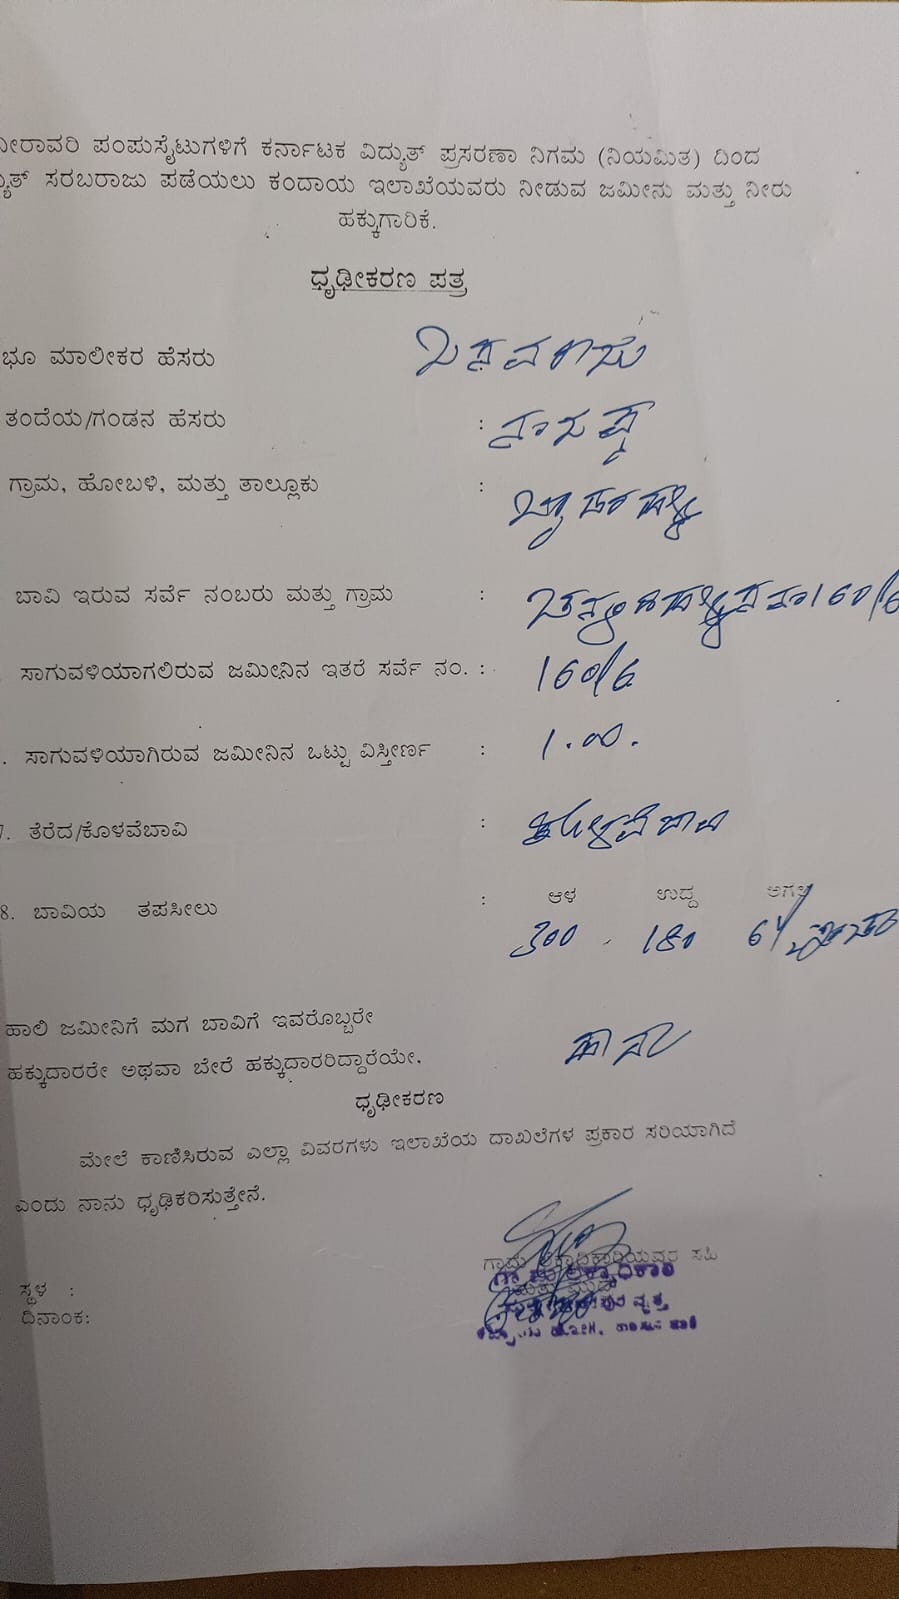 ನೀರಾವರಿ ಪಂಪುಸೈಟುಗಳಿಗೆ ಕರ್ನಾಟಕ ವಿದ್ಯುತ್ ಪ್ರಸರಣಾ ನಿಗಮ (ನಿಯಮಿತ) ದಿಂದ
ಸರಬರಾಜು ಪಡೆಯಲು ಕಂದಾಯ ಇಲಾಖೆಯವರು ನೀಡುವ ಜಮೀನು ಮತ್ತು ನೀರು
ಹಕ್ಕುಗಾರಿಕೆ.
ಧೃಢೀಕರಣ ಪತ್ರ
ಭೂ ಮಾಲೀಕರ ಹೆಸರು ಬಸವರಾಜು
ತಂದೆಯ/ಗಂಡನ ಹೆಸರು :
ಗ್ರಾಮ, ಹೋಬಳಿ, ಮತ್ತು ತಾಲ್ಲೂಕು :
ಬಾವಿ ಇರುವ ಸರ್ವೆ ನಂಬರು ಮತ್ತು ಗ್ರಾಮ : 160/6
ಸಾಗುವಳಿಯಾಗಲಿರುವ ಜಮೀನಿನ ಇತರೆ ಸರ್ವೆ ನಂ. : 160/6
. ಸಾಗುವಳಿಯಾಗಿರುವ ಜಮೀನಿನ ಒಟ್ಟು ವಿಸ್ತೀರ್ಣ : 1.00.
7. ತೆರೆದ/ಕೊಳವೆಬಾವಿ : ಕೊಳವೆ ಬಾವಿ
8. ಬಾವಿಯ ತಪಸೀಲು : ಆಳ ಉದ್ದ ಅಗಲ
300 180
ಹಾಲಿ ಜಮೀನಿಗೆ ಮಗ ಬಾವಿಗೆ ಇವರೊಬ್ಬರೇ
ಹಕ್ಕುದಾರರೇ ಅಥವಾ ಬೇರೆ ಹಕ್ಕುದಾರರಿದ್ದಾರೆಯೇ. ಹೌದು
ಧೃಢೀಕರಣ
ಮೇಲೆ ಕಾಣಿಸಿರುವ ಎಲ್ಲಾ ವಿವರಗಳು ಇಲಾಖೆಯ ದಾಖಲೆಗಳ ಪ್ರಕಾರ ಸರಿಯಾಗಿದೆ
ಎಂದು ನಾನು ಧೃಢಿಕರಿಸುತ್ತೇನೆ.
ಸಹಿ
ಸ್ಥಳ :
ದಿನಾಂಕ: